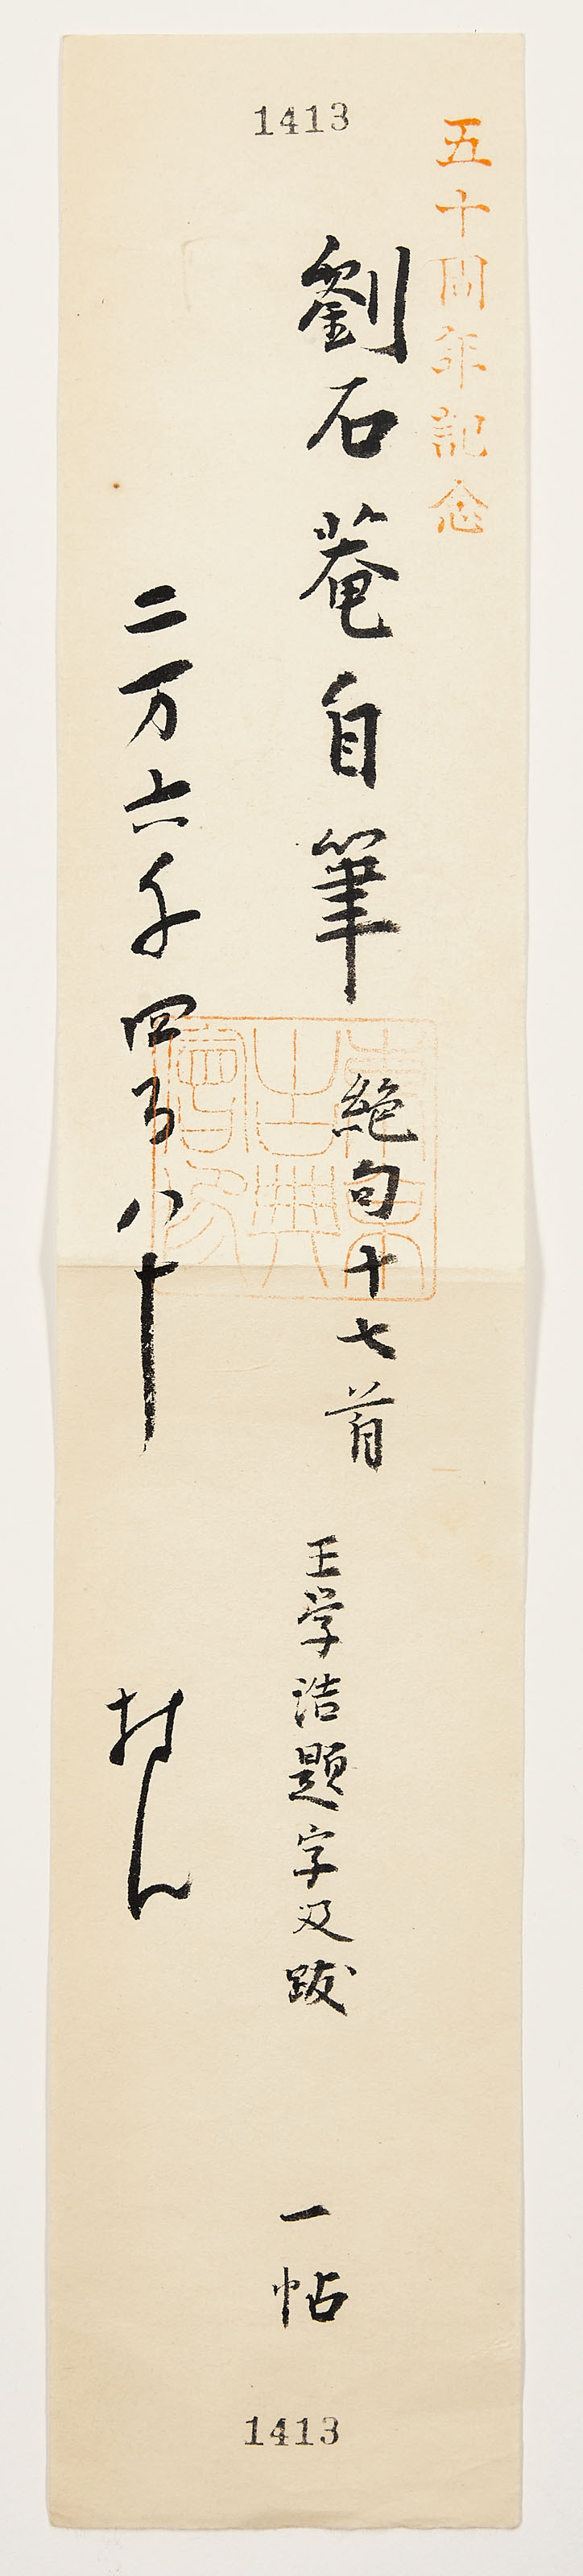 1413
五十周年記念
劉石菴自筆 絶句十七首 王学浩題字及跋 一帖
二万六千四百八十
1413